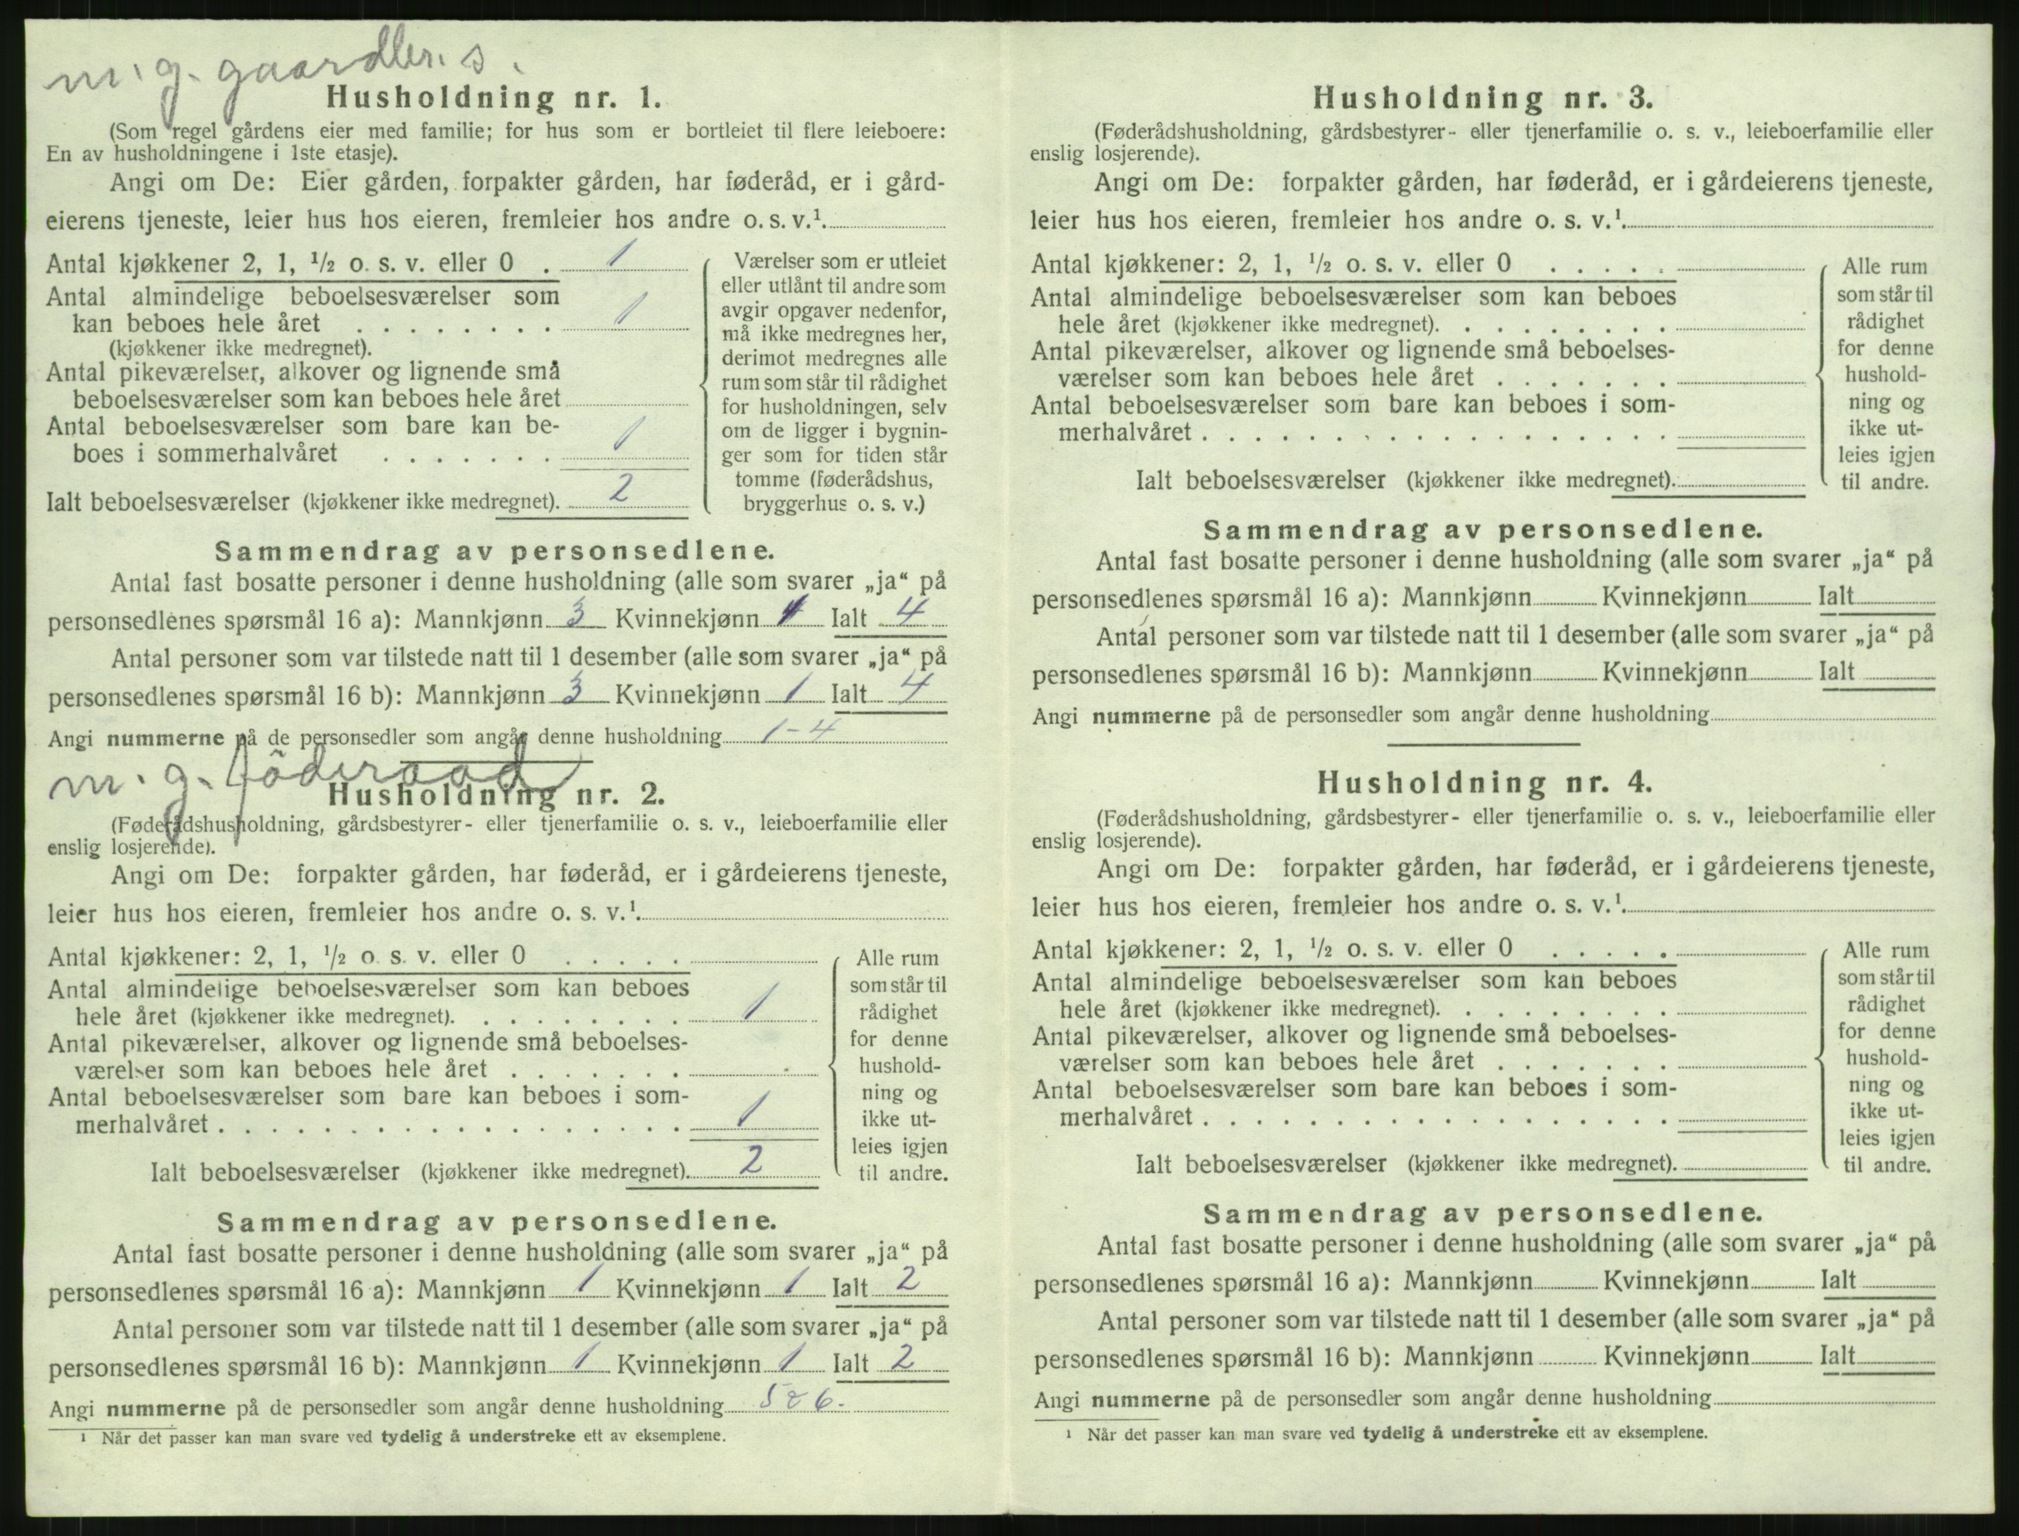 m. g. gaardbr. s.
Husholdning nr. 1.
(Som regel gårdens eier med familie; for hus som er bortleiet til flere leieboere:
En av husholdningene i 1ste etasje).
Angi om De: Eier gården, forpakter gården, har føderåd, er i gård-
eierens tjeneste, leier hus hos eieren, fremleier hos andre o. s. v.¹
Antal kjøkkener 2, 1, ½ o. s. v. eller 0 . 1
Antal almindelige beboelsesværelser som
kan beboes hele året . . . . . . . . 1
(kjøkkener ikke medregnet).
Antal pikeværelser, alkover og lignende små
beboelsesværelser som kan beboes hele året
Antal beboelsesværelser som bare kan be-
boes i sommerhalvåret . . . . . . . 1
Ialt beboelsesværelser (kjøkkener ikke medregnet). 2
Værelser som er utleiet
eller utlånt til andre som
avgir opgaver nedenfor,
må ikke medregnes her,
derimot medregnes alle
rum som står til rådighet
for husholdningen, selv
om de ligger i bygnin-
ger som for tiden står
tomme (føderådshus,
bryggerhus o. s. v.)
Sammendrag av personsedlene.
Antal fast bosatte personer i denne husholdning (alle som svarer „ja“ på
personsedlenes spørsmål 16 a): Mannkjønn 3 Kvinnekjønn 1 Ialt 4
Antal personer som var tilstede natt til 1 desember (alle som svarer „ja“ på
personsedlenes spørsmål 16 b): Mannkjønn 3 Kvinnekjønn 1 Ialt 4
Angi nummerne på de personsedler som angår denne husholdning 1-4
m. g. föderaad
Husholdning nr. 2.
(Føderådshusholdning, gårdsbestyrer- eller tjenerfamilie o. s. v., leieboerfamilie eller
enslig losjerende).
Angi om De: forpakter gården, har føderåd, er i gårdeierens tjeneste,
leier hus hos eieren, fremleier hos andre o. s. v.¹
Antal kjøkkener: 2, 1, ½ o. s. v. eller 0 . . . . .
Antal almindelige beboelsesværelser som kan beboes
hele året (kjøkkener ikke medregnet). . . . . . . . . 1
Antal pikeværelser, alkover og lignende små beboelses-
værelser som kan beboes hele året . . . . . . .
Antal beboelsesværelser som bare kan beboes i som-
merhalvåret . . . . . . . . . . . . . . . . . . 1
Ialt beboelsesværelser (kjøkkener ikke medregnet). 2
Alle rum
som står til
rådighet
for denne
hushold-
ning og
ikke ut-
leies igjen
til andre.
Sammendrag av personsedlene.
Antal fast bosatte personer i denne husholdning (alle som svarer „ja“ på
personsedlenes spørsmål 16 a): Mannkjønn 1 Kvinnekjønn 1 Ialt 2
Antal personer som var tilstede natt til 1 desember (alle som svarer „ja“ på
personsedlenes spørsmål 16 b): Mannkjønn 1 Kvinnekjønn 1 Ialt 2
Angi nummerne på de personsedler som angår denne husholdning 5 & 6.
¹ Når det passer kan man svare ved tydelig å understreke ett av eksemplene.
Husholdning nr. 3.
(Føderådshusholdning, gårdsbestyrer- eller tjenerfamilie o. s. v., leieboerfamilie eller
enslig losjerende).
Angi om De: forpakter gården, har føderåd, er i gårdeierens tjeneste,
leier hus hos eieren, fremleier hos andre o. s. v.¹
Antal kjøkkener: 2, 1, ½ o. s. v. eller 0 . . . . .
Antal almindelige beboelsesværelser som kan beboes
hele året (kjøkkener ikke medregnet). . . . . . . . .
Antal pikeværelser, alkover og lignende små beboelses-
værelser som kan beboes hele året . . . . . . .
Antal beboelsesværelser som bare kan beboes i som-
merhalvåret . . . . . . . . . . . . . . . . . .
Ialt beboelsesværelser (kjøkkener ikke medregnet).
Alle rum
som står til
rådighet
for denne
hushold-
ning og
ikke ut-
leies igjen
til andre.
Sammendrag av personsedlene.
Antal fast bosatte personer i denne husholdning (alle som svarer „ja“ på
personsedlenes spørsmål 16 a): Mannkjønn Kvinnekjønn Ialt
Antal personer som var tilstede natt til 1 desember (alle som svarer „ja“ på
personsedlenes spørsmål 16 b): Mannkjønn Kvinnekjønn Ialt
Angi nummerne på de personsedler som angår denne husholdning
Husholdning nr. 4.
(Føderådshusholdning, gårdsbestyrer- eller tjenerfamilie o. s. v., leieboerfamilie eller
enslig losjerende).
Angi om De: forpakter gården, har føderåd, er i gårdeierens tjeneste,
leier hus hos eieren, fremleier hos andre o. s. v.¹
Antal kjøkkener: 2, 1, ½ o. s. v. eller 0 . . . . .
Antal almindelige beboelsesværelser som kan beboes
hele året (kjøkkener ikke medregnet). . . . . . . . .
Antal pikeværelser, alkover og lignende små beboelses-
værelser som kan beboes hele året . . . . . . .
Antal beboelsesværelser som bare kan beboes i som-
merhalvåret . . . . . . . . . . . . . . . . . .
Ialt beboelsesværelser (kjøkkener ikke medregnet).
Alle rum
som står til
rådighet
for denne
hushold-
ning og
ikke ut-
leies igjen
til andre.
Sammendrag av personsedlene.
Antal fast bosatte personer i denne husholdning (alle som svarer „ja“ på
personsedlenes spørsmål 16 a): Mannkjønn Kvinnekjønn Ialt
Antal personer som var tilstede natt til 1 desember (alle som svarer „ja“ på
personsedlenes spørsmål 16 b): Mannkjønn Kvinnekjønn Ialt
Angi nummerne på de personsedler som angår denne husholdning
¹ Når det passer kan man svare ved tydelig å understreke ett av eksemplene.